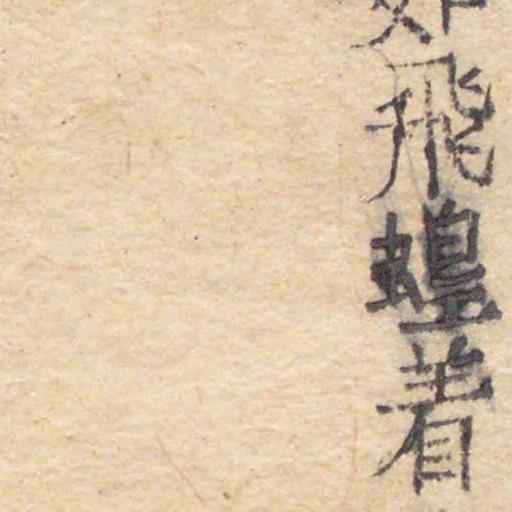 飛蝗着